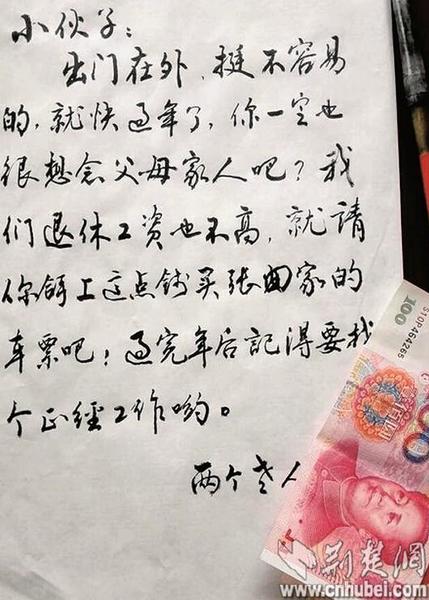 小伙子：
出门在外，挺不容易
的，就快过年了，你一定也
很想念父母家人吧？我
们退休工资也不高，就請
你餌上这点钱买张回家的
车票吧！过完年后記得要找
个正經工作哟。
两个老人
100
S10P464265
荆楚網
www.cnhubei.com